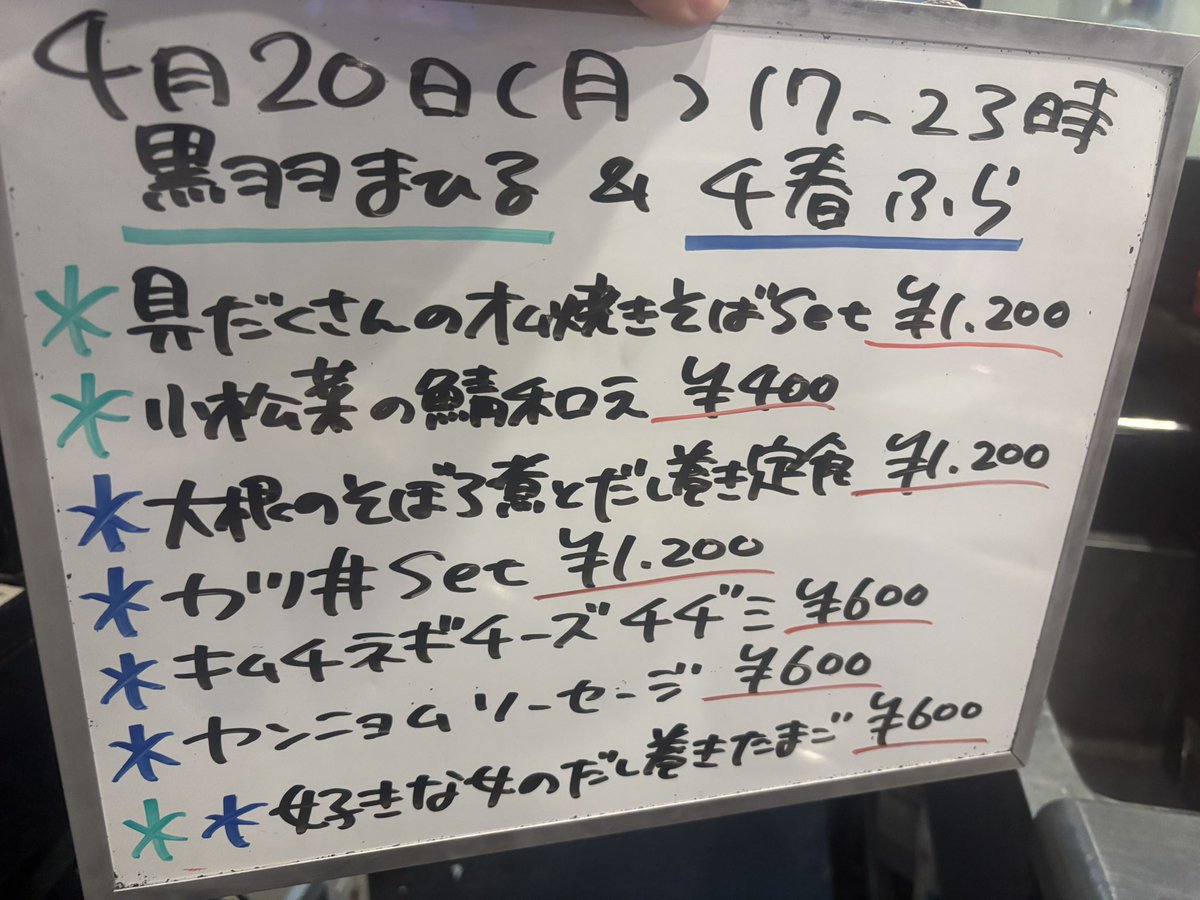 4月20日(月) 17-23時
黒羽まひる & 千春ふら
* 具だくさんのオム焼きそばSet ¥1.200
* 小松菜の鯖和え ¥400
* 大根のそぼろ煮とだし巻き定食 ¥1.200
* カツ丼Set ¥1.200
* キムチネギチーズチヂミ ¥600
* ヤンニョムソーセージ ¥600
* * 好きな女のだし巻きたまご ¥600